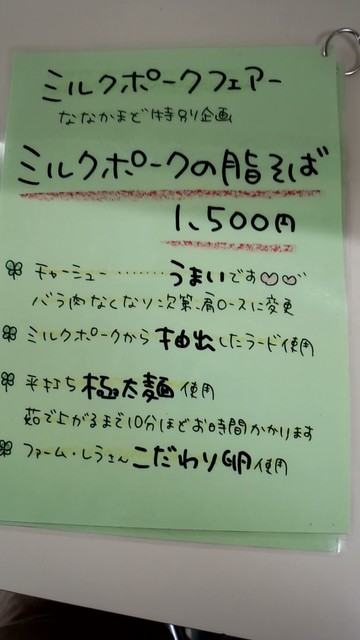 ミルクポークフェアー
ななかまど特別企画
ミルクポークの脂そば
1,500円
チャーシュー……… うまいです♡♡
バラ肉なくなり次第、肩ロースに変更
ミルクポークから抽出したラード使用
平打ち極太麺使用
茹で上がるまで10分ほどお時間かかります
ファーム・レラさん こだわり卵使用